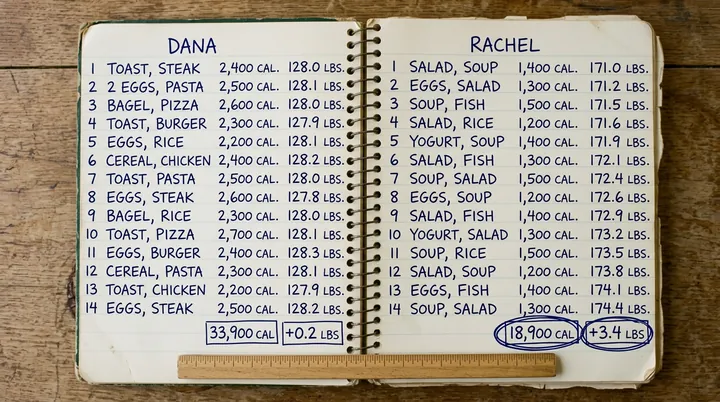 DANA
1 TOAST, STEAK 2,400 CAL. 128.0 LBS.
2 2 EGGS, PASTA 2,500 CAL. 128.1 LBS.
3 BAGEL, PIZZA 2,600 CAL. 128.0 LBS.
4 TOAST, BURGER 2,300 CAL. 127.9 LBS.
5 EGGS, RICE 2,200 CAL. 128.1 LBS.
6 CEREAL, CHICKEN 2,400 CAL. 128.2 LBS.
7 TOAST, PASTA 2,500 CAL. 128.0 LBS.
8 EGGS, STEAK 2,600 CAL. 127.8 LBS.
9 BAGEL, RICE 2,300 CAL. 128.0 LBS.
10 TOAST, PIZZA 2,700 CAL. 128.1 LBS.
11 EGGS, BURGER 2,400 CAL. 128.3 LBS.
12 CEREAL, PASTA 2,300 CAL. 128.1 LBS.
13 TOAST, CHICKEN 2,200 CAL. 127.9 LBS.
14 EGGS, STEAK 2,500 CAL. 128.2 LBS.
33,900 CAL +0.2 LBS
RACHEL
1 SALAD, SOUP 1,400 CAL. 171.0 LBS.
2 EGGS, SALAD 1,300 CAL. 171.2 LBS.
3 SOUP, FISH 1,500 CAL. 171.5 LBS.
4 SALAD, RICE 1,200 CAL. 171.6 LBS.
5 YOGURT, SOUP 1,400 CAL. 171.9 LBS.
6 SALAD, FISH 1,300 CAL. 172.1 LBS.
7 SOUP, SALAD 1,500 CAL. 172.4 LBS.
8 EGGS, SOUP 1,200 CAL. 172.6 LBS.
9 SALAD, FISH 1,400 CAL. 172.9 LBS.
10 YOGURT, SALAD 1,300 CAL. 173.2 LBS.
11 SOUP, RICE 1,500 CAL. 173.5 LBS.
12 SALAD, SOUP 1,200 CAL. 173.8 LBS.
13 EGGS, FISH 1,400 CAL. 174.1 LBS.
14 SOUP, SALAD 1,300 CAL. 174.4 LBS.
18,900 CAL +3.4 LBS